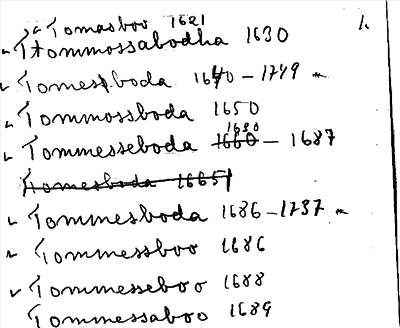 Tomasboo 1621
Thommossabodha 1630
Tomessboda 1640 - 1749
Tommossboda 1650
1680
Tommesseboda 1660 - 1687
Tomesboda 1665
Tommesboda 1686 - 1737
Tommessboo 1686
Tommesseboo 1688
Tommessaboo 1689